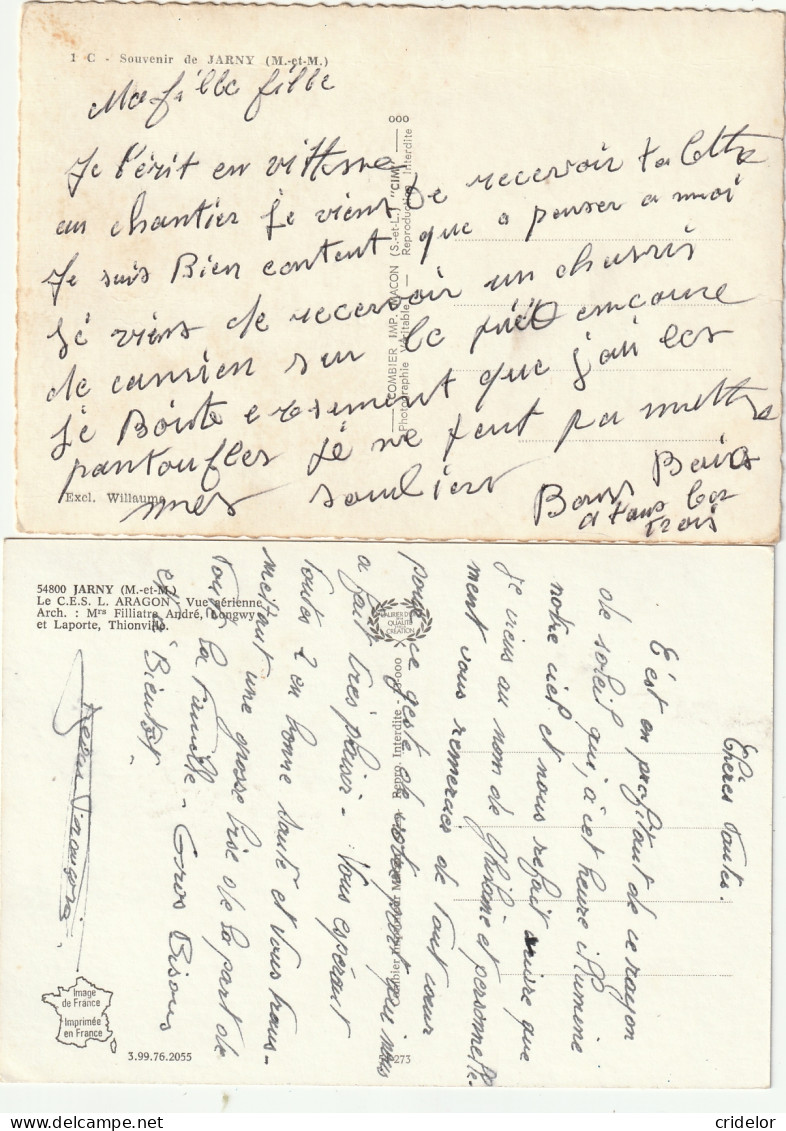 1 C - Souvenir de JARNY (M.-et-M.)
Ma fille
Je t'érit en vittesse
au chantier je viens de recevoir ta lettre
Je suis Bien content que a penser a moi
Je viens de recevoir un
de camien sur le pièt encoure
Je Boite que j'ai les
pantoufles je ne peut pa mettre
mes souliers
Bons Bais
a tous les
trois
Excl. Willaume
ooo
COMBIER IMP. MACON (S.-et-L.) "CIM"
Photographie Véritable — Reproduction Interdite
54800 JARNY (M.-et-M.)
Le C.E.S. L. ARAGON - Vue aérienne
Arch. : Mrs Filliatre André, Longwy
et Laporte, Thionville.
Chères Tantes.
C'est en profitant de ce rayon
de soleil qui, à cet heure illumine
notre ciel et nous refait que
je viens au nom de Ghislaine et personnelle-
ment vous remercier de tout cœur
pour ce geste de votre part qui nous
a fait très plaisir - Vous espérant
toutes 2 en bonne santé et vous trans-
mettant une grosse bise de la part de
toute la famille - Gros Bisous
et à Bientôt.
Repro. Interdite
273
Image
de France
Imprimée
en France
3.99.76.2055
cridelor
delcampe.net